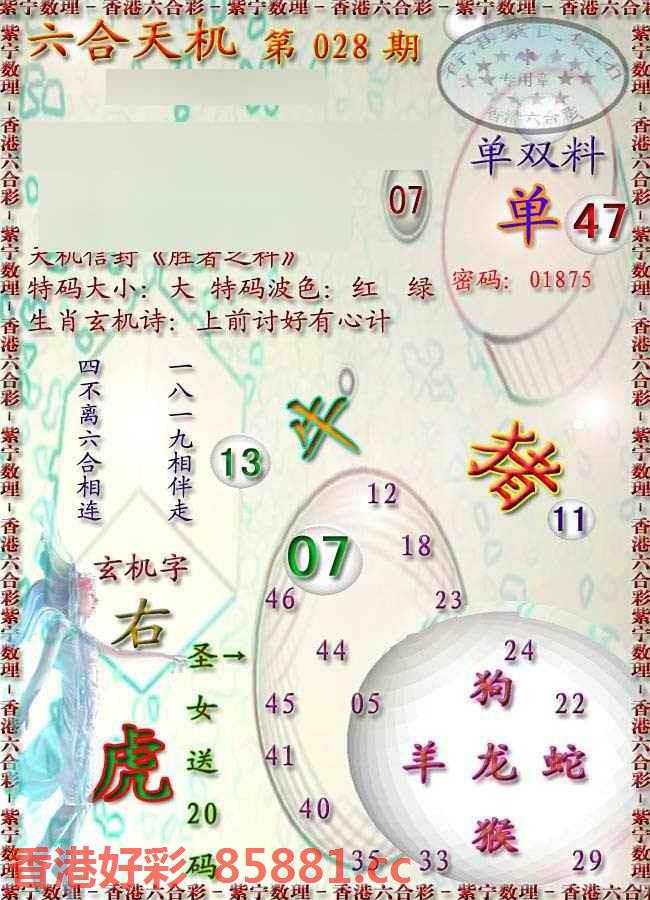 紫宁数理－香港六合彩－紫宁数理－香港六合彩－紫宁数理－香港六合彩
六合天机 第 028 期
专用章
香港六合彩
单双料
07
单 47
天机信封《胜者之料》
特码大小：大 特码波色：红 绿
密码：01875
生肖玄机诗：上前讨好有心计
一八一九相伴走
四不离六合相连
13
猪
11
12
07
18
46
23
玄机字
右
圣女送20码
→
44
24
狗
45
05
22
虎
41
羊 龙 蛇
40
猴
35
33
29
香港好彩 85881.cc
紫宁数理－香港六合彩－紫宁数理－香港六合彩－紫宁数理－香港六合彩